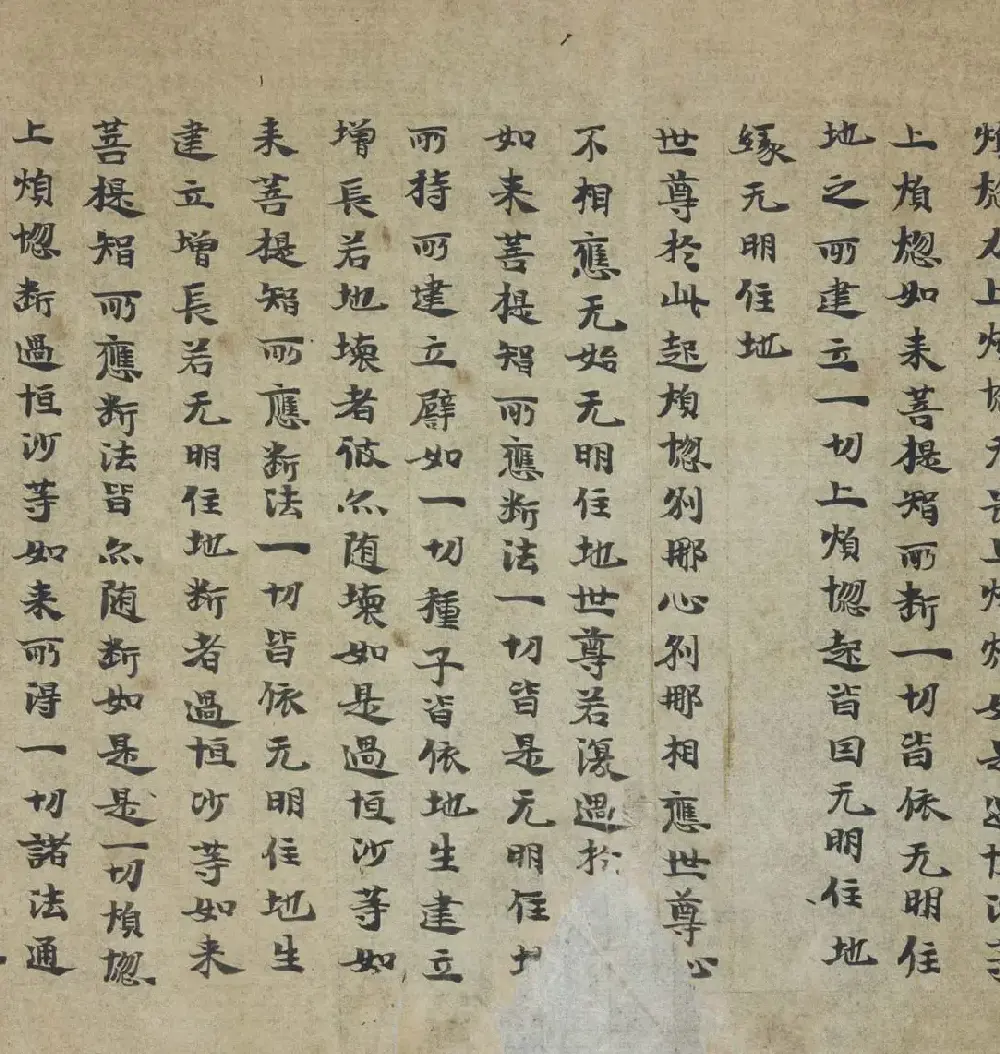 煩惱力上煩惱无畏上煩惱如是過恒沙等
上煩惱如来菩提智所断一切皆依无明住
地之所建立一切上煩惱起皆因无明住地
緣无明住地
世尊於此起煩惱刹那心刹那相應世尊心
不相應无始无明住地世尊若復過於
如来菩提智所應断法一切皆是无明住地
所持所建立辟如一切種子皆依地生建立
增長若地壞者彼亦随壞如是過恒沙等如
来菩提智所應断法一切皆依无明住地生
建立增長若无明住地断者過恒沙等如来
菩提智所應断法皆亦随断如是是一切煩惱
上煩惱断過恒沙等如来所得一切諸法通